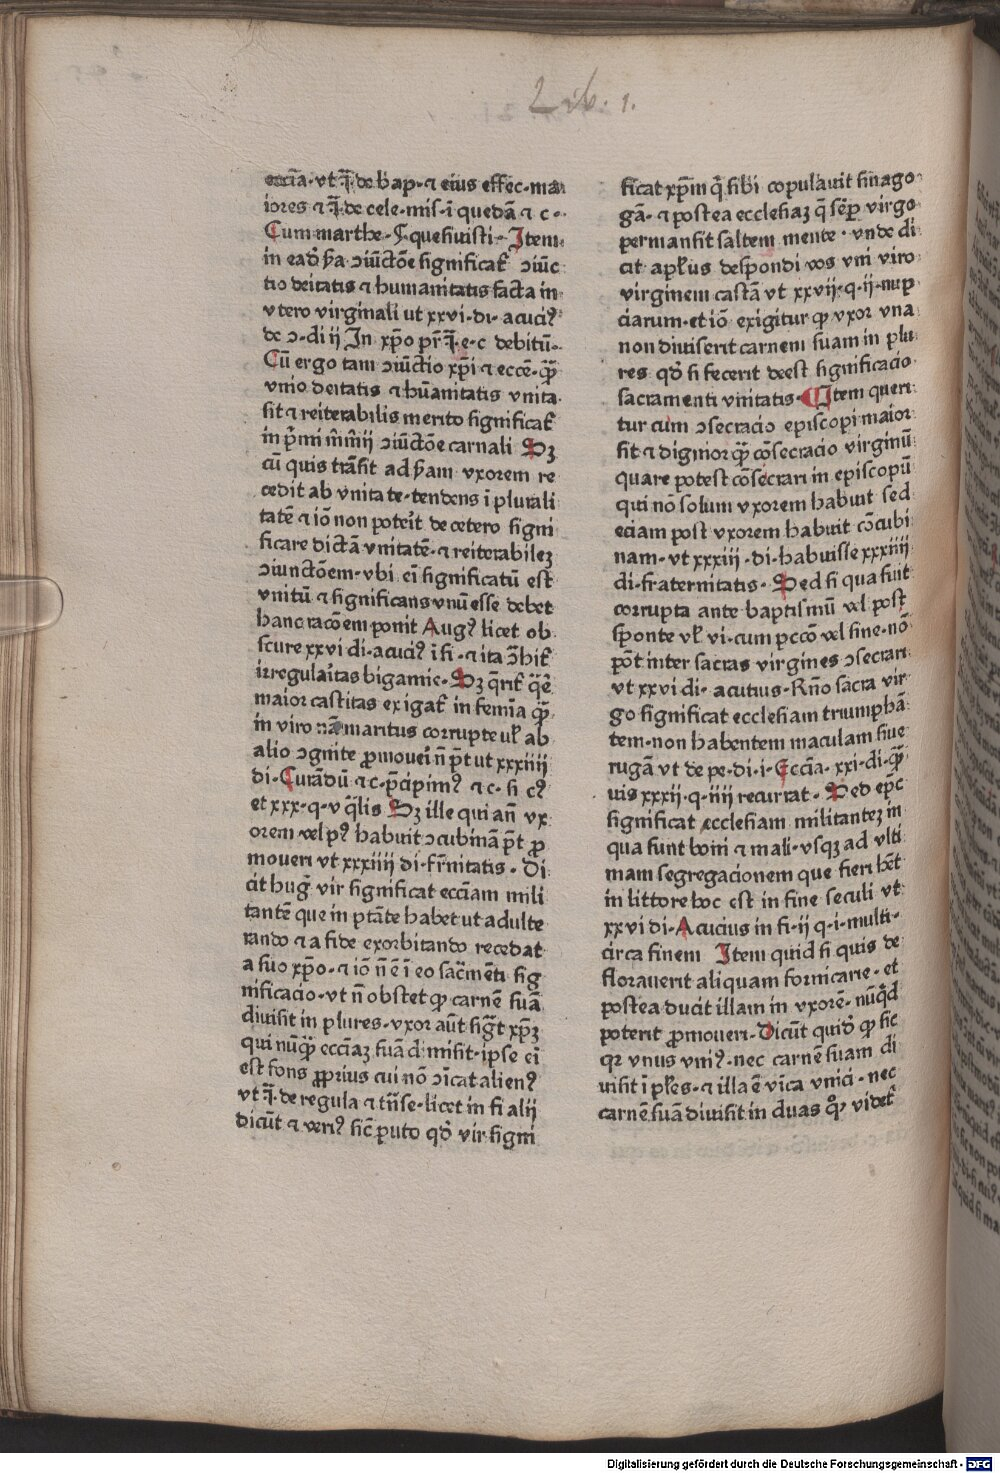 Lib. 1.
eccīa·vt q̄·de bap·⁊ eius effec·ma
iores ⁊ q̄ de cele·mis·ī quedā ⁊ c·
Cum marthe·⁋ quesiuisti·Item
in ead̄ p̄a ↄiūctōe significat̄ ↄiūc
tio deitatis ⁊ humanitatis facta in
vtero virginali ut xxvi·di·acuciꝰ
de ↄ·di ij In xp̄o pr̄ q̄·e·c debitū·
Cū ergo tam ↄiūctio xp̄i ⁊ eccē·qͣ̄
vnio deitatis ⁊ hūanitatis vnita
sit ⁊ reiterabilis merito significat̄
in p̄mi m̄rīmij ↄiūctōe carnali Sꝫ
cū quis trāsit ad s̄am vxorem re
cedit ab vnitate·tendens ī plurali
tatē ⁊ iō non poteit de cetero signi
ficare dictā vnitatē·⁊ reiterabileꝫ
ↄiunctōem·vbi ei significatū est
vnitū ⁊ significans vnū esse debet
hanc racōem ponit Augꝰ licet ob
scure xxvi di·acuciꝰ ī fi·⁊ ita ↄ̄hit̄
irregulaitas bigamie·Sꝫ q̄rit̄ q̄rē
maior castitas exigat̄ in femīa qͣ̄
in viro nā maritus corrupte vl̄ ab
alio ↄgnite ꝓmoueri n̄ p̄t ut xxxiiij
di·Curādū ⁊ c·p̄cipimꝰ ⁊ c·si cꝰ
et xxx·q·v q̄lis Sꝫ ille qui an̄ vx
orem vel pꝰ habuit ↄcubinā p̄t ꝓ
moueri vt xxxiiij di·fr̄nitatis·Di
cit huḡ vir significat eccīam mili
tantē que in ptāte habet ut adulte
rando ⁊ a fide exorbitando recedat
a suo xp̄o·⁊ iō n̄ ē ī eo sac̄mēti sig
nificacio·vt n̄ obstet ꝙ carnē suā
diuisit in plures·vxor aūt siḡt xp̄ꝫ
qui nūqͣ̄ eccīaꝫ suā dimisit·ipse ei
est fons ꝓprius cui nō ↄīcat alienꝰ
vt q̄·de regula ⁊ tn̄se·licet in fi alij
dicūt ⁊ veriꝰ sic̄ puto qd̄ vir signi
ficat xp̄m q̄ sibi copulauit sinago
gā·⁊ postea ecclesiaꝫ q̄ sēꝑ virgo
permansit saltem mente·vnde di
cit apl̄us despondi vos vni viro
virginem castā vt xxvij·q·ij·nup
ciarum·et iō exigitur ꝙ vxor vna
non diuiserit carnem suam in plu
res qd̄ si fecerit deest significacio
sacramenti vnitatis·⁋Item queri
tur cum ↄsecracio episcopi maior
sit ⁊ dignior qͣ̄ cōsecracio virginū
quare potest cōsecrari in episcopū
qui nō solum vxorem habuit sed
eciam post vxorem habuit cōcubi
nam·vt xxxiij·di·habuisse xxxiiij
di·fraternitatis·Sed si qua fuit
corrupta ante baptismū vel post
sponte vl̄ vi·cum pccō vel sine·nō
pōt inter sacras virgines ↄsecrari
vt xxvi di·acutius·Rn̄o sacra vir
go significat ecclesiam triumphā
tem·non habentem maculam siue
rugā vt de pe·di·i·Eccīa·xxi·di·qͣ̄
uis xxxij·q·iiij recurrat·Sed ep̄c
significat ecclesiam militanteꝫ in
qua sunt boni ⁊ mali·vsqꝫ ad vlti
mam segregacionem que fieri hēt
in littore hoc est in fine seculi vt
xxvi di·Acucius in fi·ij q·i·multi·
circa finem Item quid si quis de
florauerit aliquam fornicarie·et
postea ducit illam in vxorē·nūq̄d
poterit ꝓmoueri·Dicūt quid̄ ꝙ sic
qꝛ vnus vniꝰ·nec carnē suam di
uisit ī pl̄es·⁊ illa ē vīca vnici·nec
carnē suā diuisit in duas qd̄ videt̄
Digitalisierung gefördert durch die Deutsche Forschungsgemeinschaft - DFG